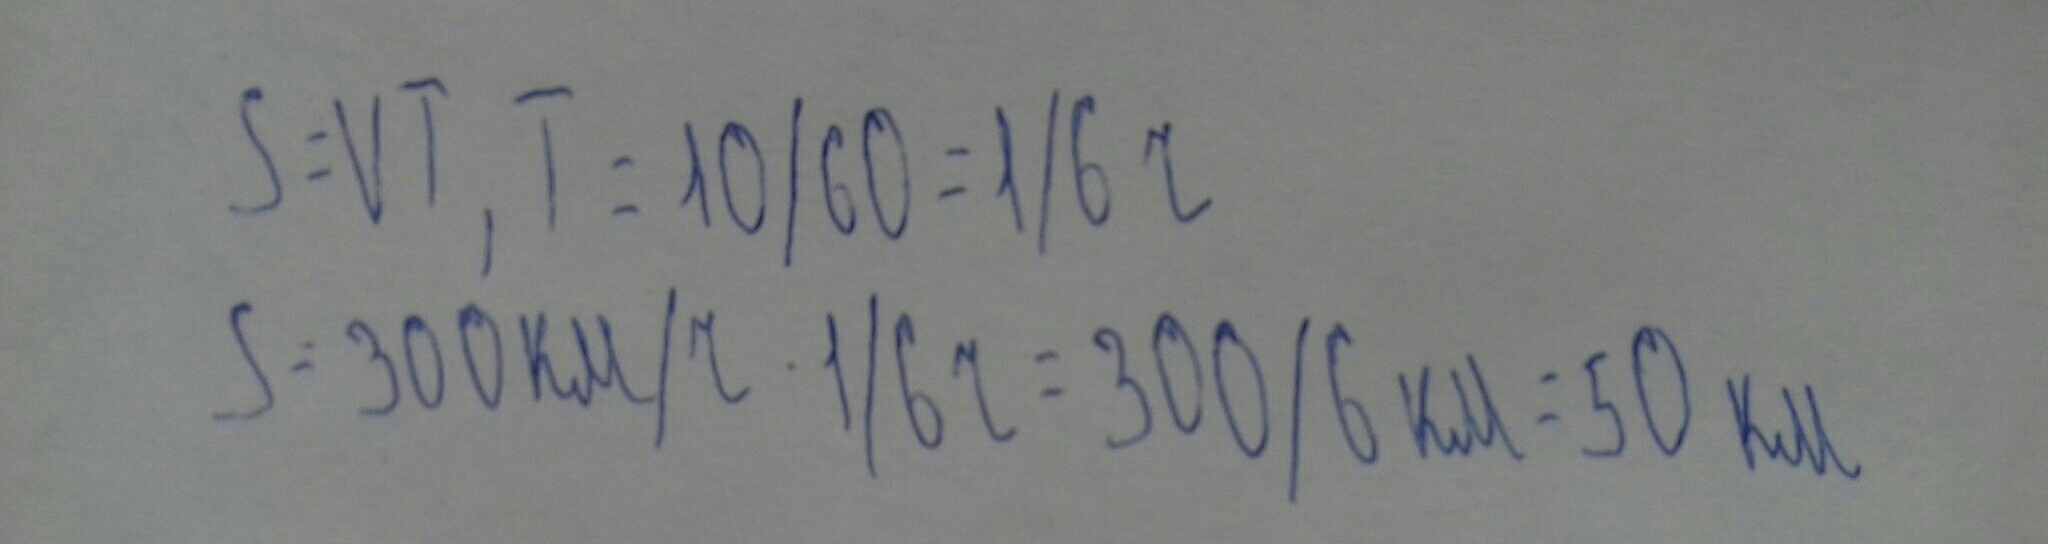 S=VT, T=10/60=1/6 ч
S=300км/ч·1/6ч=300/6 км=50 км